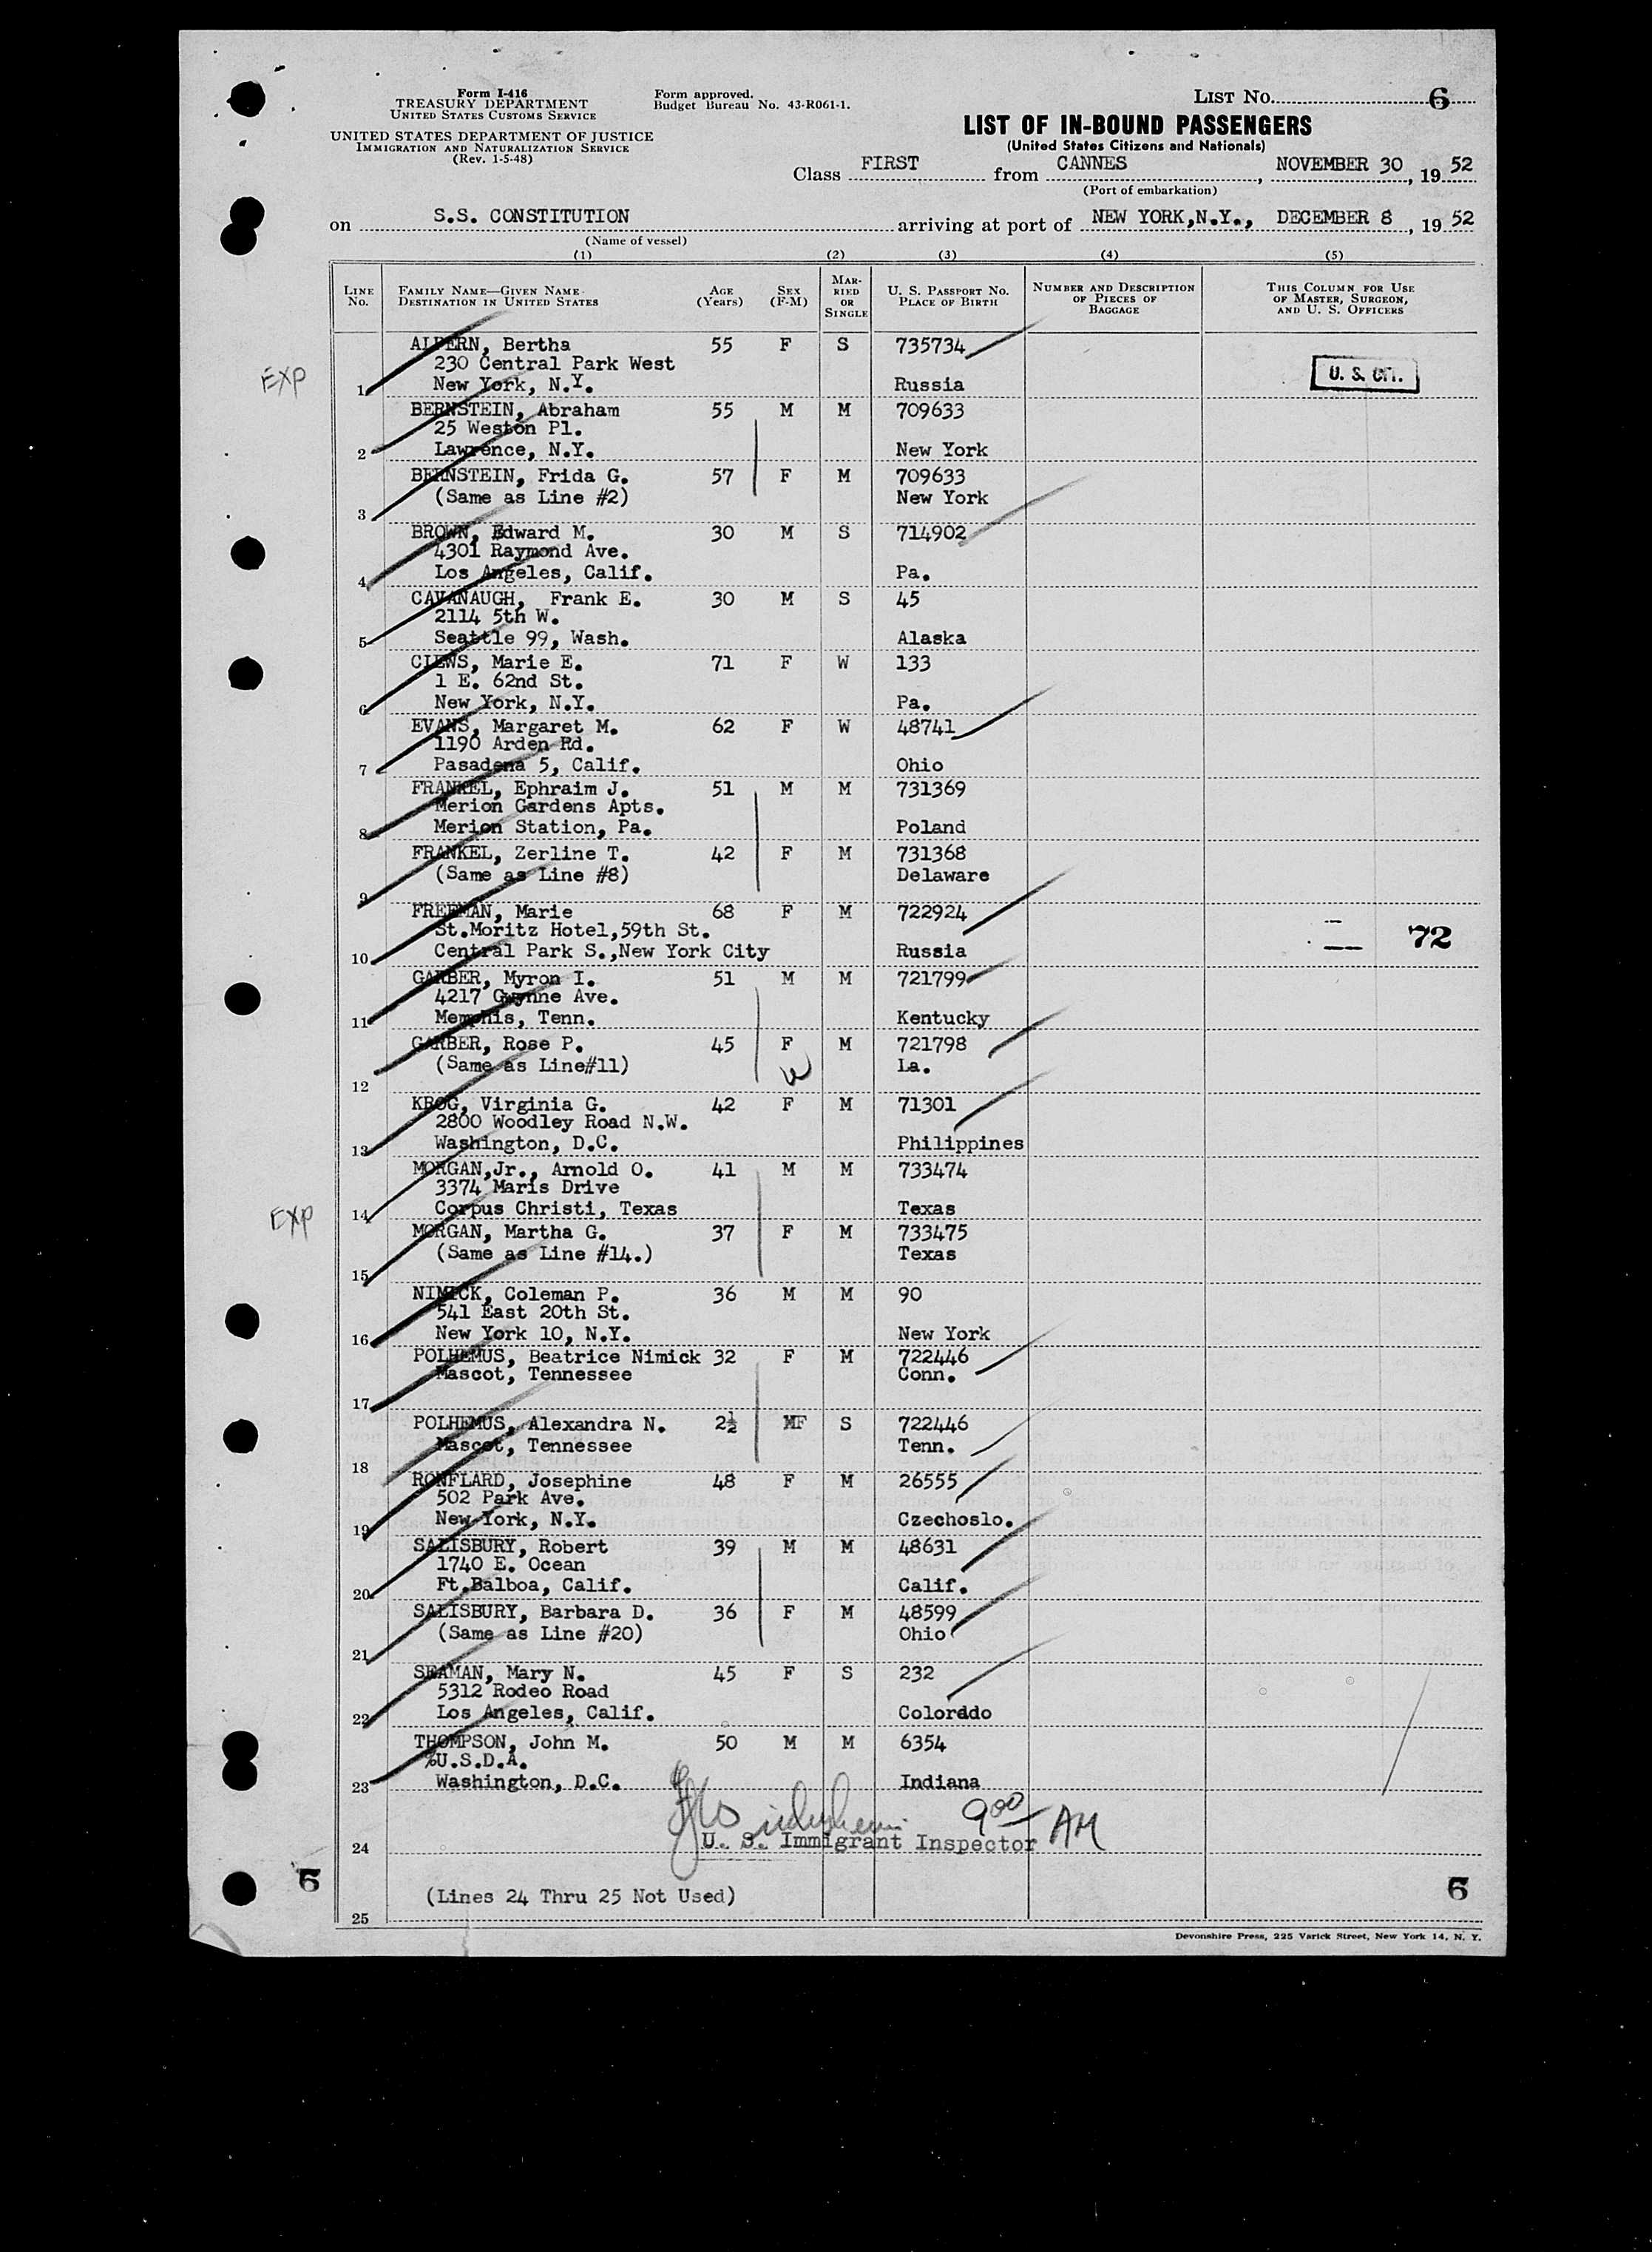 Form I-416
TREASURY DEPARTMENT
UNITED STATES CUSTOMS SERVICE
UNITED STATES DEPARTMENT OF JUSTICE
IMMIGRATION AND NATURALIZATION SERVICE
(Rev. 1-5-48)
Form approved.
Budget Bureau No. 43-R061-1.
LIST NO. 6
LIST OF IN-BOUND PASSENGERS
(United States Citizens and Nationals)
Class FIRST from CANNES, NOVEMBER 30, 19 52
(Port of embarkation)
on S.S. CONSTITUTION arriving at port of NEW YORK,N.Y., DECEMBER 8, 19 52
(Name of vessel)
(1) (2) (3) (4) (5)
LINE NO. FAMILY NAME—GIVEN NAME DESTINATION IN UNITED STATES AGE (Years) SEX (F-M) MARRIED OR SINGLE U. S. PASSPORT NO. PLACE OF BIRTH NUMBER AND DESCRIPTION OF PIECES OF BAGGAGE THIS COLUMN FOR USE OF MASTER, SURGEON, AND U. S. OFFICERS
ALPERN, Bertha 55 F S 735734
230 Central Park West
EXP 1 New York, N.Y. Russia U. S. CIT.
BERNSTEIN, Abraham 55 M M 709633
25 Weston Pl.
2 Lawrence, N.Y. New York
BERNSTEIN, Frida G. 57 F M 709633
(Same as Line #2) New York
3
BROWN, Edward M. 30 M S 714902
4301 Raymond Ave.
4 Los Angeles, Calif. Pa.
CAVANAUGH, Frank E. 30 M S 45
2114 5th W.
5 Seattle 99, Wash. Alaska
CLEWS, Marie E. 71 F W 133
1 E. 62nd St.
6 New York, N.Y. Pa.
EVANS, Margaret M. 62 F W 48741
1190 Arden Rd.
7 Pasadena 5, Calif. Ohio
FRANKEL, Ephraim J. 51 M M 731369
Merion Gardens Apts.
8 Merion Station, Pa. Poland
FRANKEL, Zerline T. 42 F M 731368
(Same as Line #8) Delaware
9
FREEMAN, Marie 68 F M 722924
St.Moritz Hotel,59th St. 72
10 Central Park S.,New York City Russia
GARBER, Myron I. 51 M M 721799
4217 Gwynne Ave.
11 Memphis, Tenn. Kentucky
GARBER, Rose P. 45 F M 721798
(Same as Line#11) La.
12
KROG, Virginia G. 42 F M 71301
2800 Woodley Road N.W.
13 Washington, D.C. Philippines
MORGAN,Jr., Arnold O. 41 M M 733474
3374 Maris Drive
EXP 14 Corpus Christi, Texas Texas
MORGAN, Martha G. 37 F M 733475
(Same as Line #14.) Texas
15
NIMICK, Coleman P. 36 M M 90
541 East 20th St.
16 New York 10, N.Y. New York
POLHEMUS, Beatrice Nimick 32 F M 722446
Mascot, Tennessee Conn.
17
POLHEMUS, Alexandra N. 2½ MF S 722446
Mascot, Tennessee Tenn.
18
RONFLARD, Josephine 48 F M 26555
502 Park Ave.
19 New York, N.Y. Czechoslo.
SALISBURY, Robert 39 M M 48631
1740 E. Ocean
20 Ft.Balboa, Calif. Calif.
SALISBURY, Barbara D. 36 F M 48599
(Same as Line #20) Ohio
21
SEAMAN, Mary N. 45 F S 232
5312 Rodeo Road
22 Los Angeles, Calif. Colorado
THOMPSON, John M. 50 M M 6354
%U.S.D.A.
23 Washington, D.C. Indiana
9 00 AM
U. S. Immigrant Inspector
24
6 (Lines 24 Thru 25 Not Used) 6
25
Devonshire Press, 225 Varick Street, New York 14, N. Y.